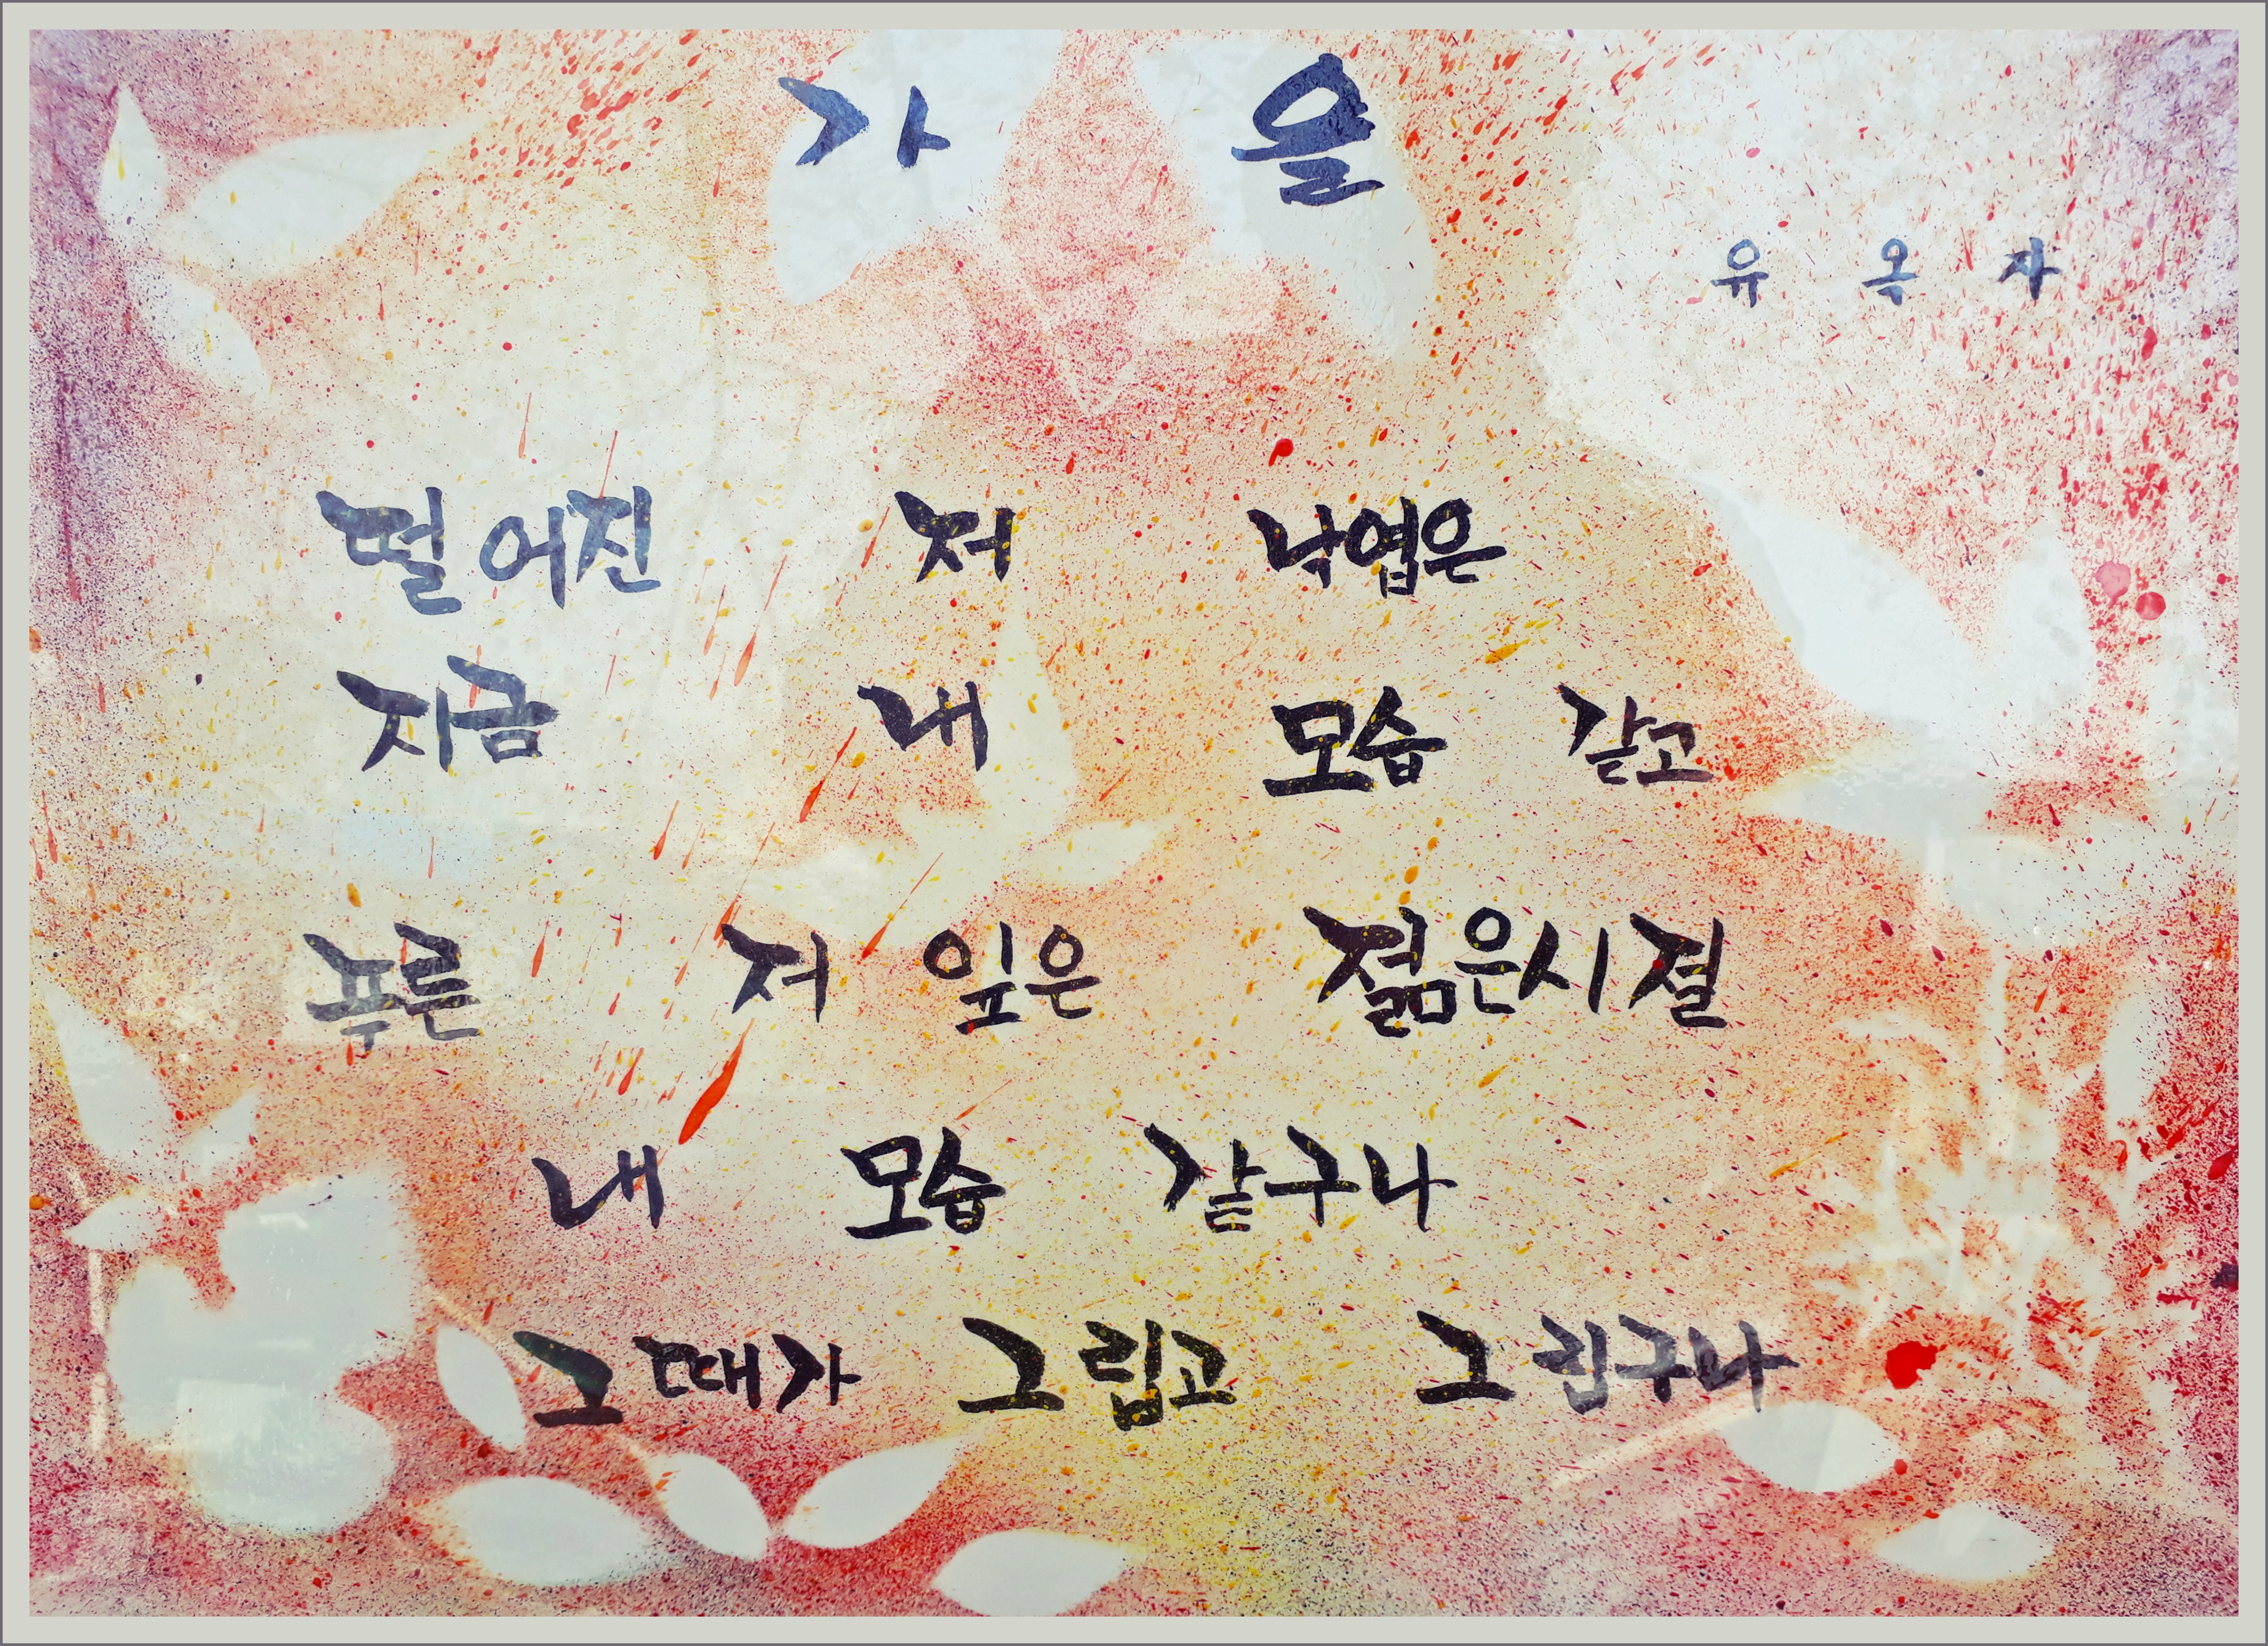 가을
유옥자
떨어진 저 낙엽은
지금 내 모습 같고
푸른 저 잎은 젊은시절
내 모습 같구나
그때가 그립고 그립구나